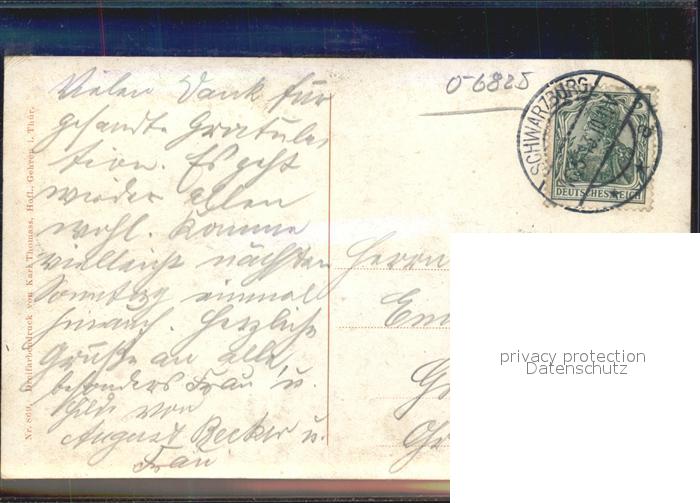 Vielen Dank für
gesandte Gratula-
tion. Es geht
wieder allen
wohl. Komme
vielleicht nächsten
Sonntag einmal
hinauf. Herzliche
Grüße an alle,
besonders Frau u.
von
August Becker u.
Frau
0-6825
SCHWARZBURG
DEUTSCHES REICH
Herrn
privacy protection
Datenschutz
Nr. 869. Dreifarbendruck von Karl Thomass, Hofl., Gehren i. Thür.